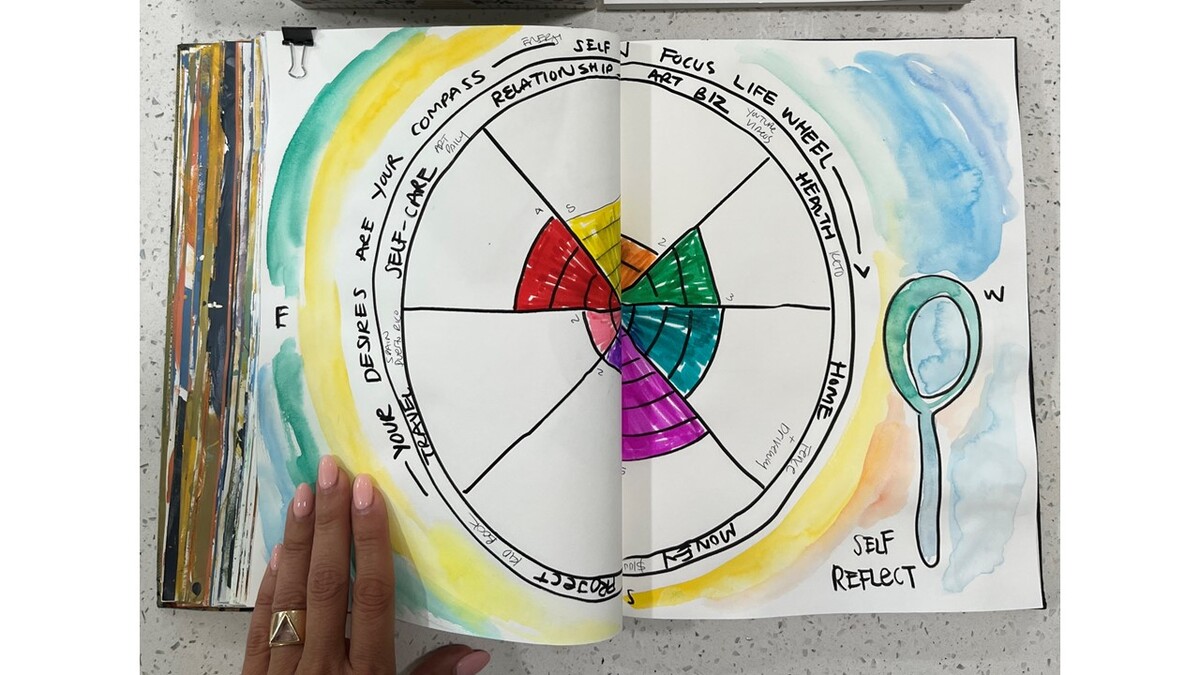 ENERGY
SELF
RELATIONSHIP
YOUR DESIRES ARE YOUR COMPASS
ART DAILY
SELF-CARE
E
SPAIN
PUERTO RICO
TRAVEL
PROJECT
FOCUS LIFE WHEEL
ART BIZ
YOUTUBE
VIDEOS
HEALTH
KETO
W
HOME
FENCE
+
Driveway
MONEY
S
SELF
REFLECT
4
5
2
3
5
2
2